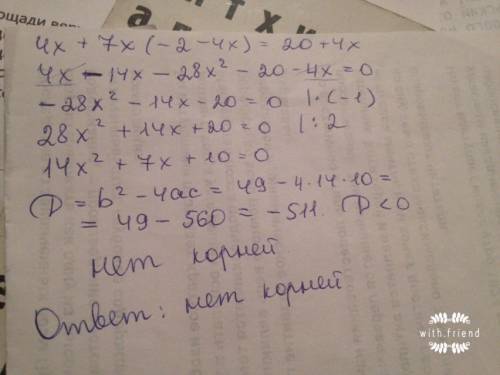 4x + 7x (-2 - 4x) = 20 + 4x
4x - 14x - 28x² - 20 - 4x = 0
- 28x² - 14x - 20 = 0 | · (-1)
28x² + 14x + 20 = 0 | : 2
14x² + 7x + 10 = 0
D = b² - 4ac = 49 - 4 · 14 · 10 =
= 49 - 560 = - 511. D < 0
нет корней
Ответ: нет корней
with.friend